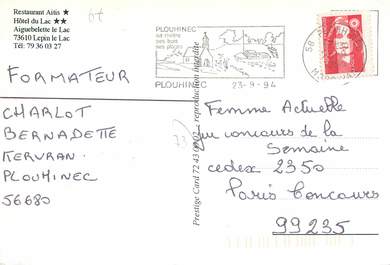 Restaurant Aitis ★
Hôtel du Lac ★★
Aiguebelette le Lac
73610 Lepin le Lac
Tél: 79 36 03 27
PLOUHINEC
sa rivière
ses bois
ses plages
PLOUHINEC
23-9-94
FORMATEUR
CHARLOT
BERNADETTE
KERVRAN
PLOUHINEC
56680
Prestige Card 72 43 reproduction interdite
Femme Actuelle
jeu concours de la
Semaine
cedex 2350
Paris Concours
99235